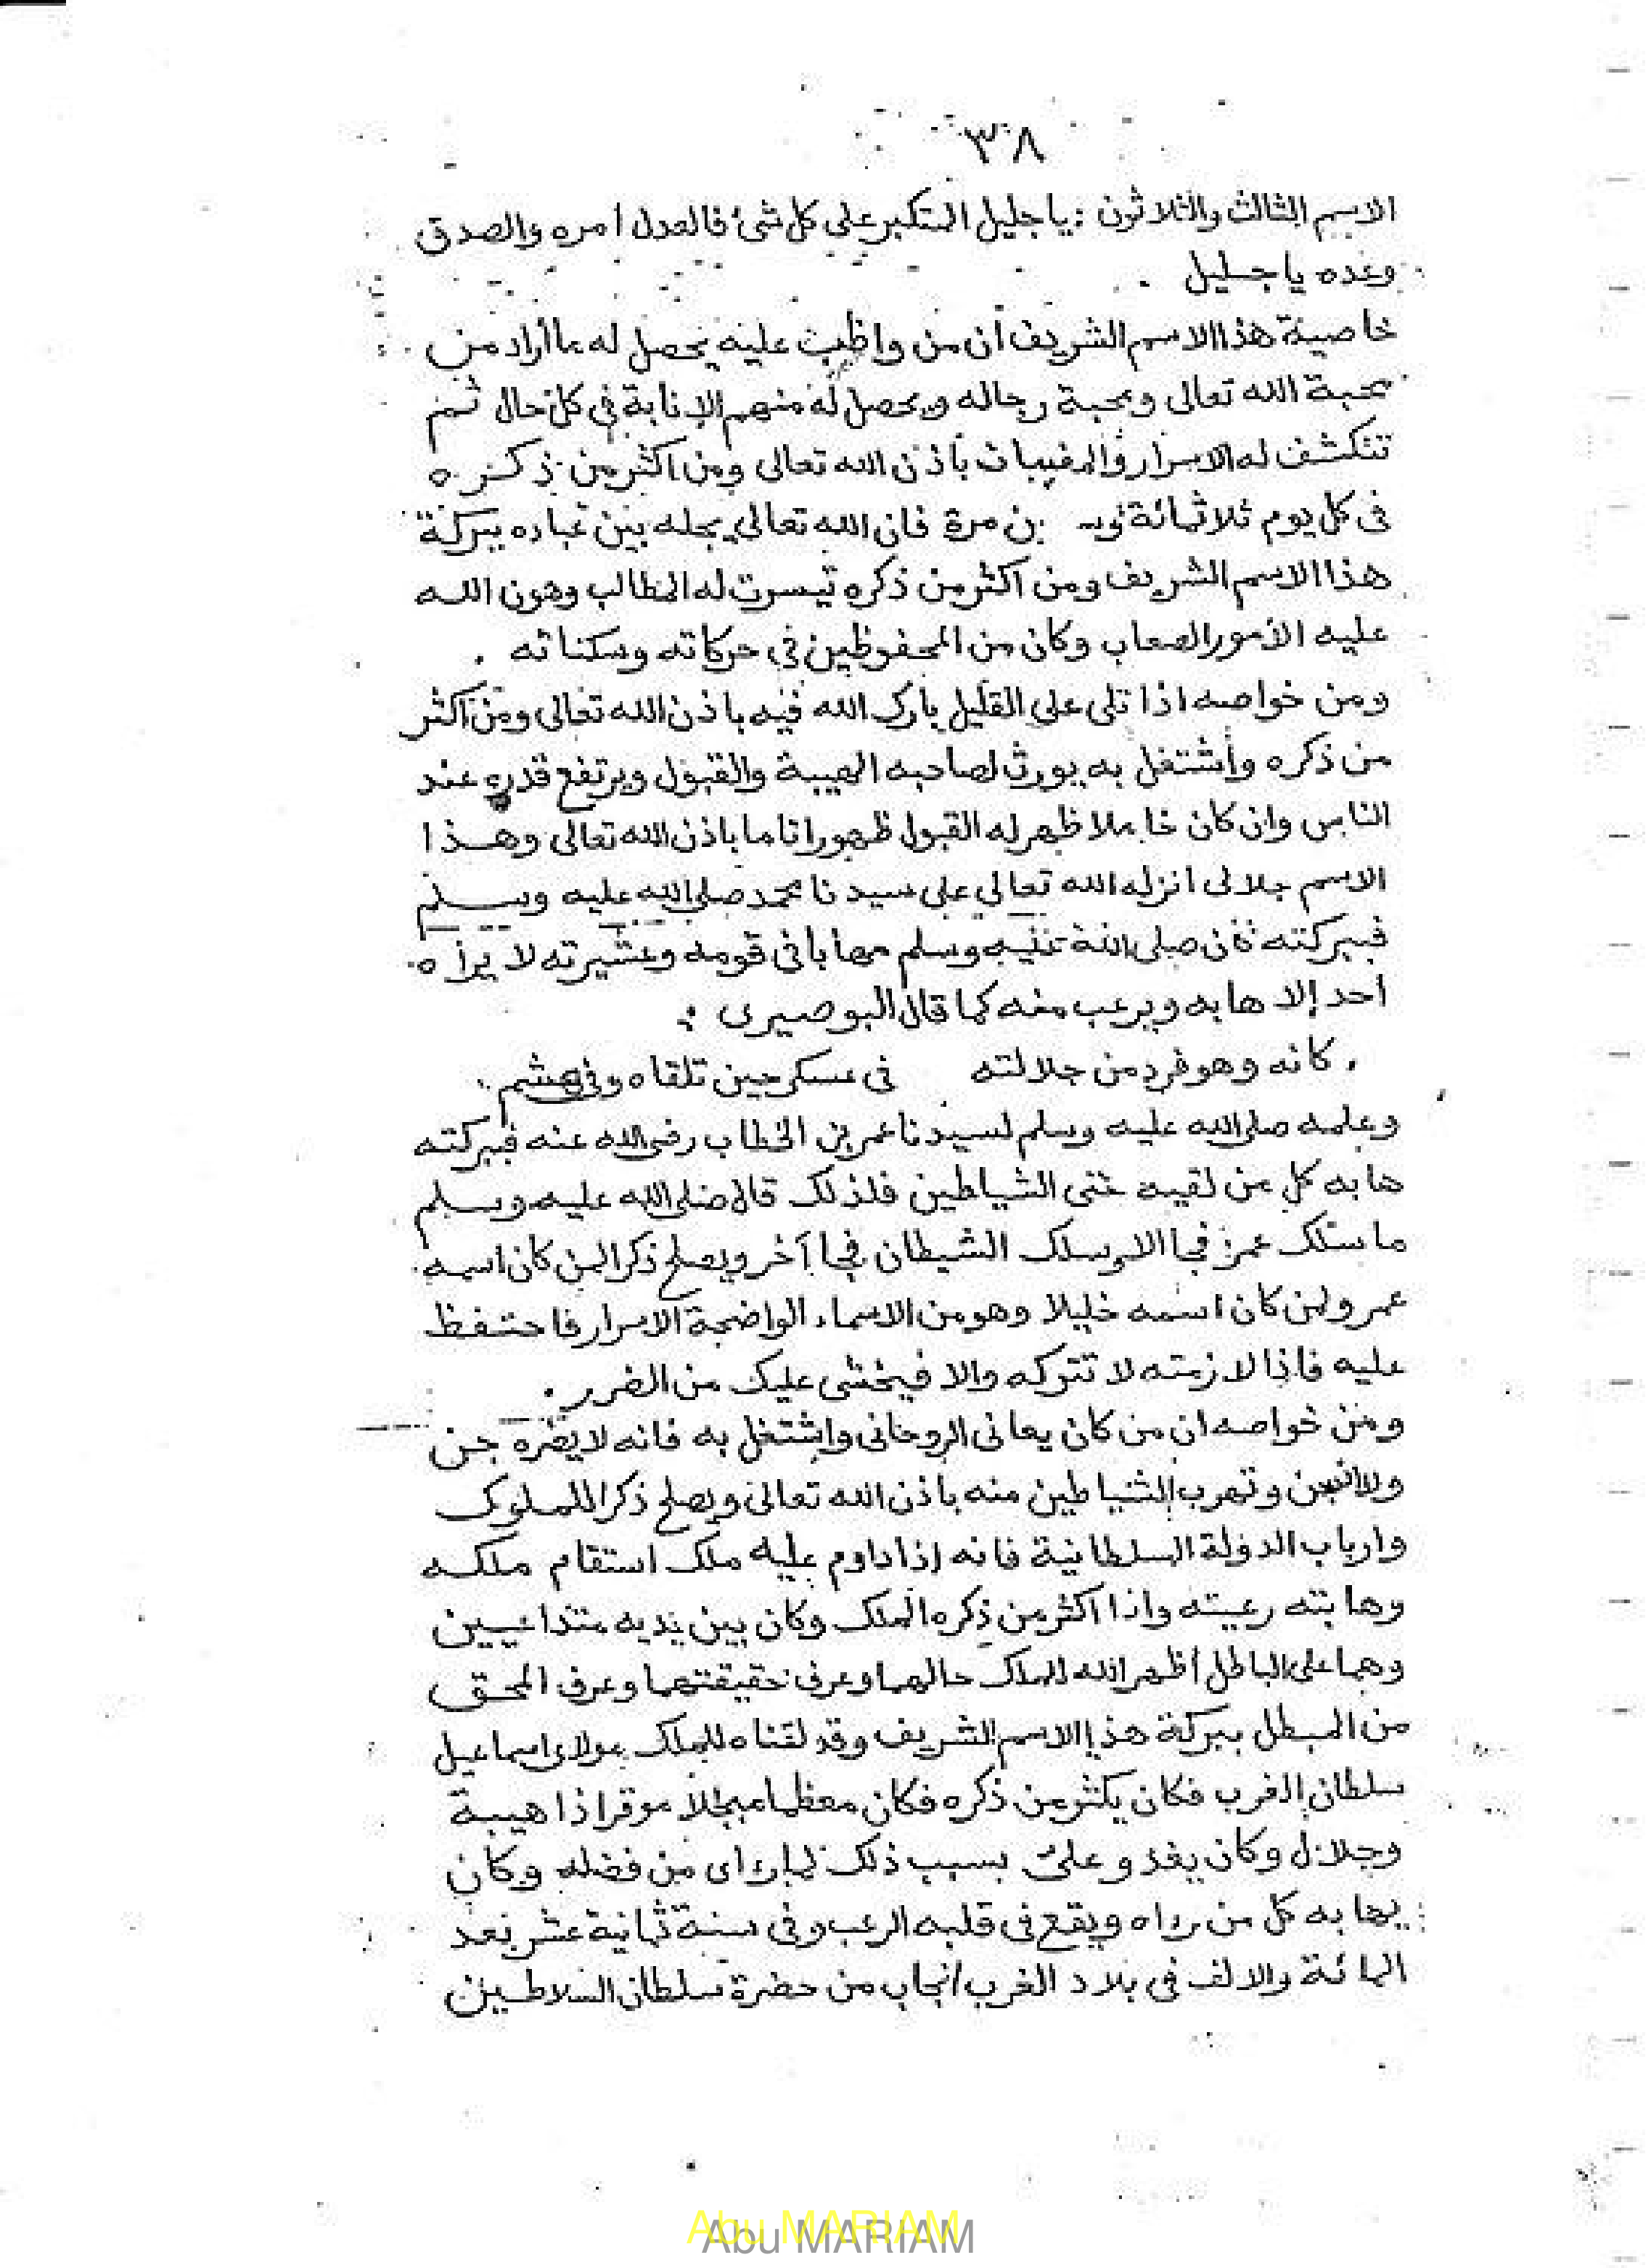 ٣٨
الاسم الثالث والثلاثون : يا جليل المتكبر على كل شئ فالعدل أمره والصدق
وعده يا جليل .
خاصية هذا الاسم الشريف أن من واظب عليه يحصل له ما أراد من
محبة الله تعالى ومحبة رجاله ويحصل له منهم الإنابة فى كل حال ثم
تنكشف له الاسرار والمغيبات بأذن الله تعالى ومن اكثر من ذكره
فى كل يوم ثلاثمائة مرة فان الله تعالى يجله بين عباده ببركة
هذا الاسم الشريف ومن اكثر من ذكره تيسرت له المطالب وهون الله
عليه الأمور الصعاب وكان من المحفوظين فى حركاته وسكناته .
ومن خواصه اذا تلى على القليل بارك الله فيه باذن الله تعالى ومن أكثر
من ذكره وأشتغل به يورث لصاحبه الهيبة والقبول ويرتفع قدره عند
الناس وان كان خاملا ظهر له القبول ظهورا تاما باذن الله تعالى وهذا
الاسم جلالى انزله الله تعالى على سيدنا محمد صلى الله عليه وسلم
فببركته كان صلى الله عليه وسلم مهابا فى قومه وعشيرته لا يرأه
أحد إلا هابه ويرعب منه كما قال البوصيرى :
كانه وهو فرد من جلالته فى عسكر حين تلقاه وفى حشم
وعلمه صلى الله عليه وسلم لسيدنا عمر بن الخطاب رضى الله عنه فببركته
هابه كل من لقيه حتى الشياطين فلذلك قال صلى الله عليه وسلم
ما سلك عمر فجا الا وسلك الشيطان فجا آخر ويصلح ذكرا لمن كان اسمه
عمر ولمن كان اسمه خليلا وهو من الاسماء الواضحة الاسرار فاحتفظ
عليه فاذا لازمته لا تتركه والا فيخشى عليك من الضرر .
ومن خواصه ان من كان يعانى الروحانى واشتغل به فانه لا يضره جن
ولا انس وتهرب الشياطين منه باذن الله تعالى ويصلح ذكرا للملوك
وارباب الدولة السلطانية فانه إذا داوم عليه ملك استقام ملكه
وهابته رعيته واذا اكثر من ذكره الملك وكان بين يديه متداعيين
وهما على الباطل أظهر الله للملك حالهما وعرف حقيقتهما وعرف المحق
من المبطل ببركة هذا الاسم الشريف وقد لقناه للملك مولاى اسماعيل
سلطان الغرب فكان يكثر من ذكره فكان معظما مبجلا موقرا ذا هيبة
وجلال وكان يغدو علىّ بسبب ذلك لما رأى من فضله وكان
يهابه كل من رداه ويقع فى قلبه الرعب وفى سنة ثمانية عشر بعد
المائة والالف فى بلاد الغرب أنجاب من حضرة سلطان السلاطين
Abu MARIAM